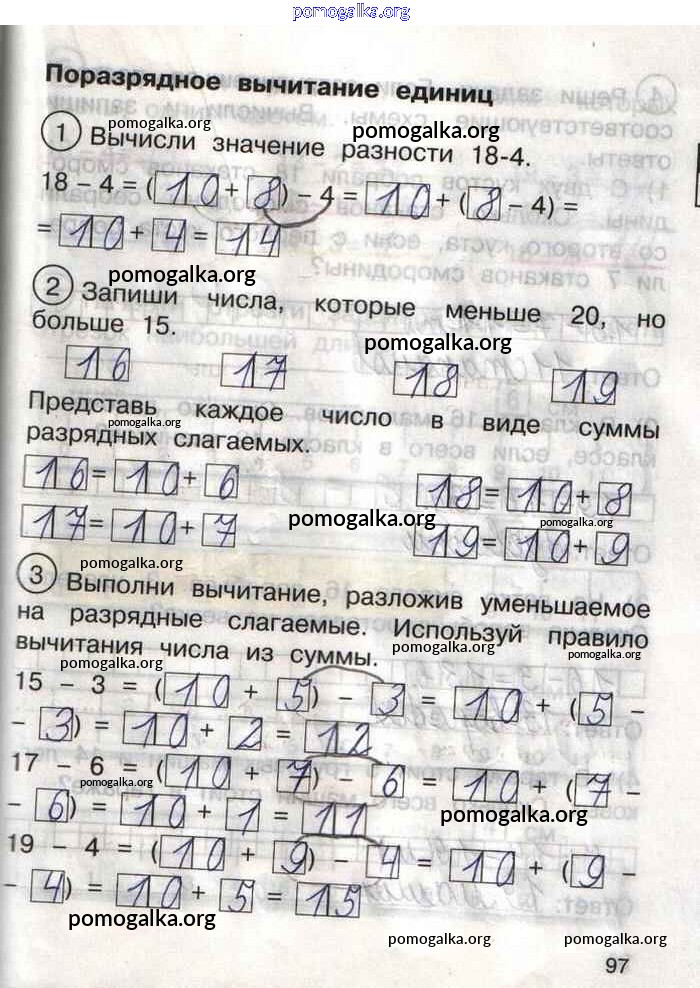 pomogalka.org
Поразрядное вычитание единиц
pomogalka.org pomogalka.org
1 Вычисли значение разности 18-4.
18 – 4 = (10 + 8) – 4 = 10 + (8 – 4) =
= 10 + 4 = 14
pomogalka.org
2 Запиши числа, которые меньше 20, но
больше 15.
pomogalka.org
16 17 18 19
Представь каждое число в виде суммы
pomogalka.org
разрядных слагаемых.
16 = 10 + 6 18 = 10 + 8
17 = 10 + 7 pomogalka.org pomogalka.org
19 = 10 + 9
pomogalka.org
3 Выполни вычитание, разложив уменьшаемое
на разрядные слагаемые. Используй правило
вычитания числа из суммы.
pomogalka.org pomogalka.org pomogalka.org
15 – 3 = (10 + 5) – 3 = 10 + (5 –
– 3) = 10 + 2 = 12
17 – 6 = (10 + 7) – 6 = 10 + (7 –
pomogalka.org
– 6) = 10 + 1 = 11
pomogalka.org
19 – 4 = (10 + 9) – 4 = 10 + (9 –
– 4) = 10 + 5 = 15
pomogalka.org
pomogalka.org pomogalka.org
97